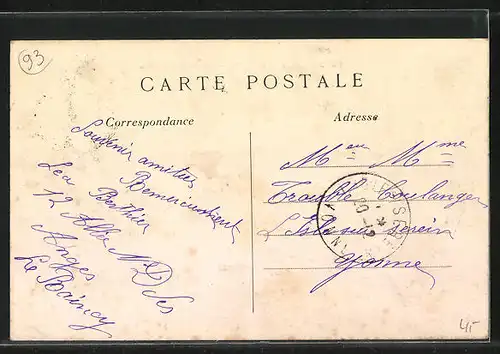 93
CARTE POSTALE
Correspondance
Adresse
Souvenir amitiés
Léa Berthier
12 Allée N D des
Anges
Le Raincy
Mr Mme
Boulanger
L'Isle sur Serein
Yonne
45